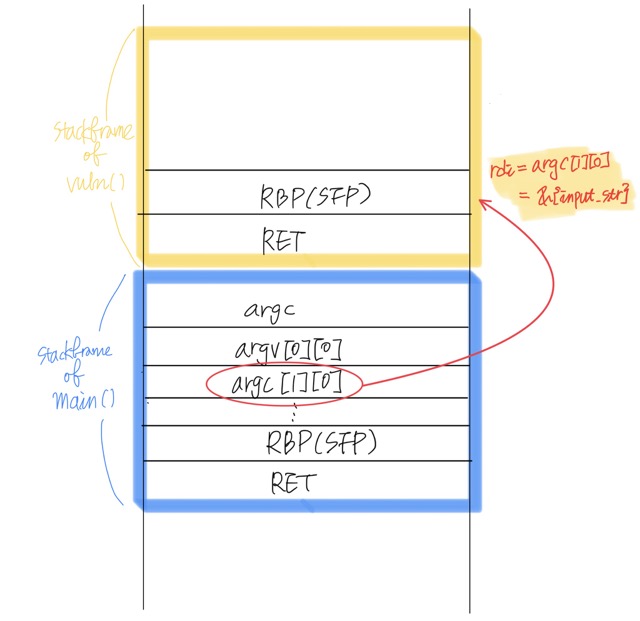 stackframe
of
vuln()
RBP(SFP)
RET
rdi = argc[1][0]
= &[input_str]
stackframe
of
main()
argc
argv[0][0]
argc[1][0]
⋮
RBP(SFP)
RET